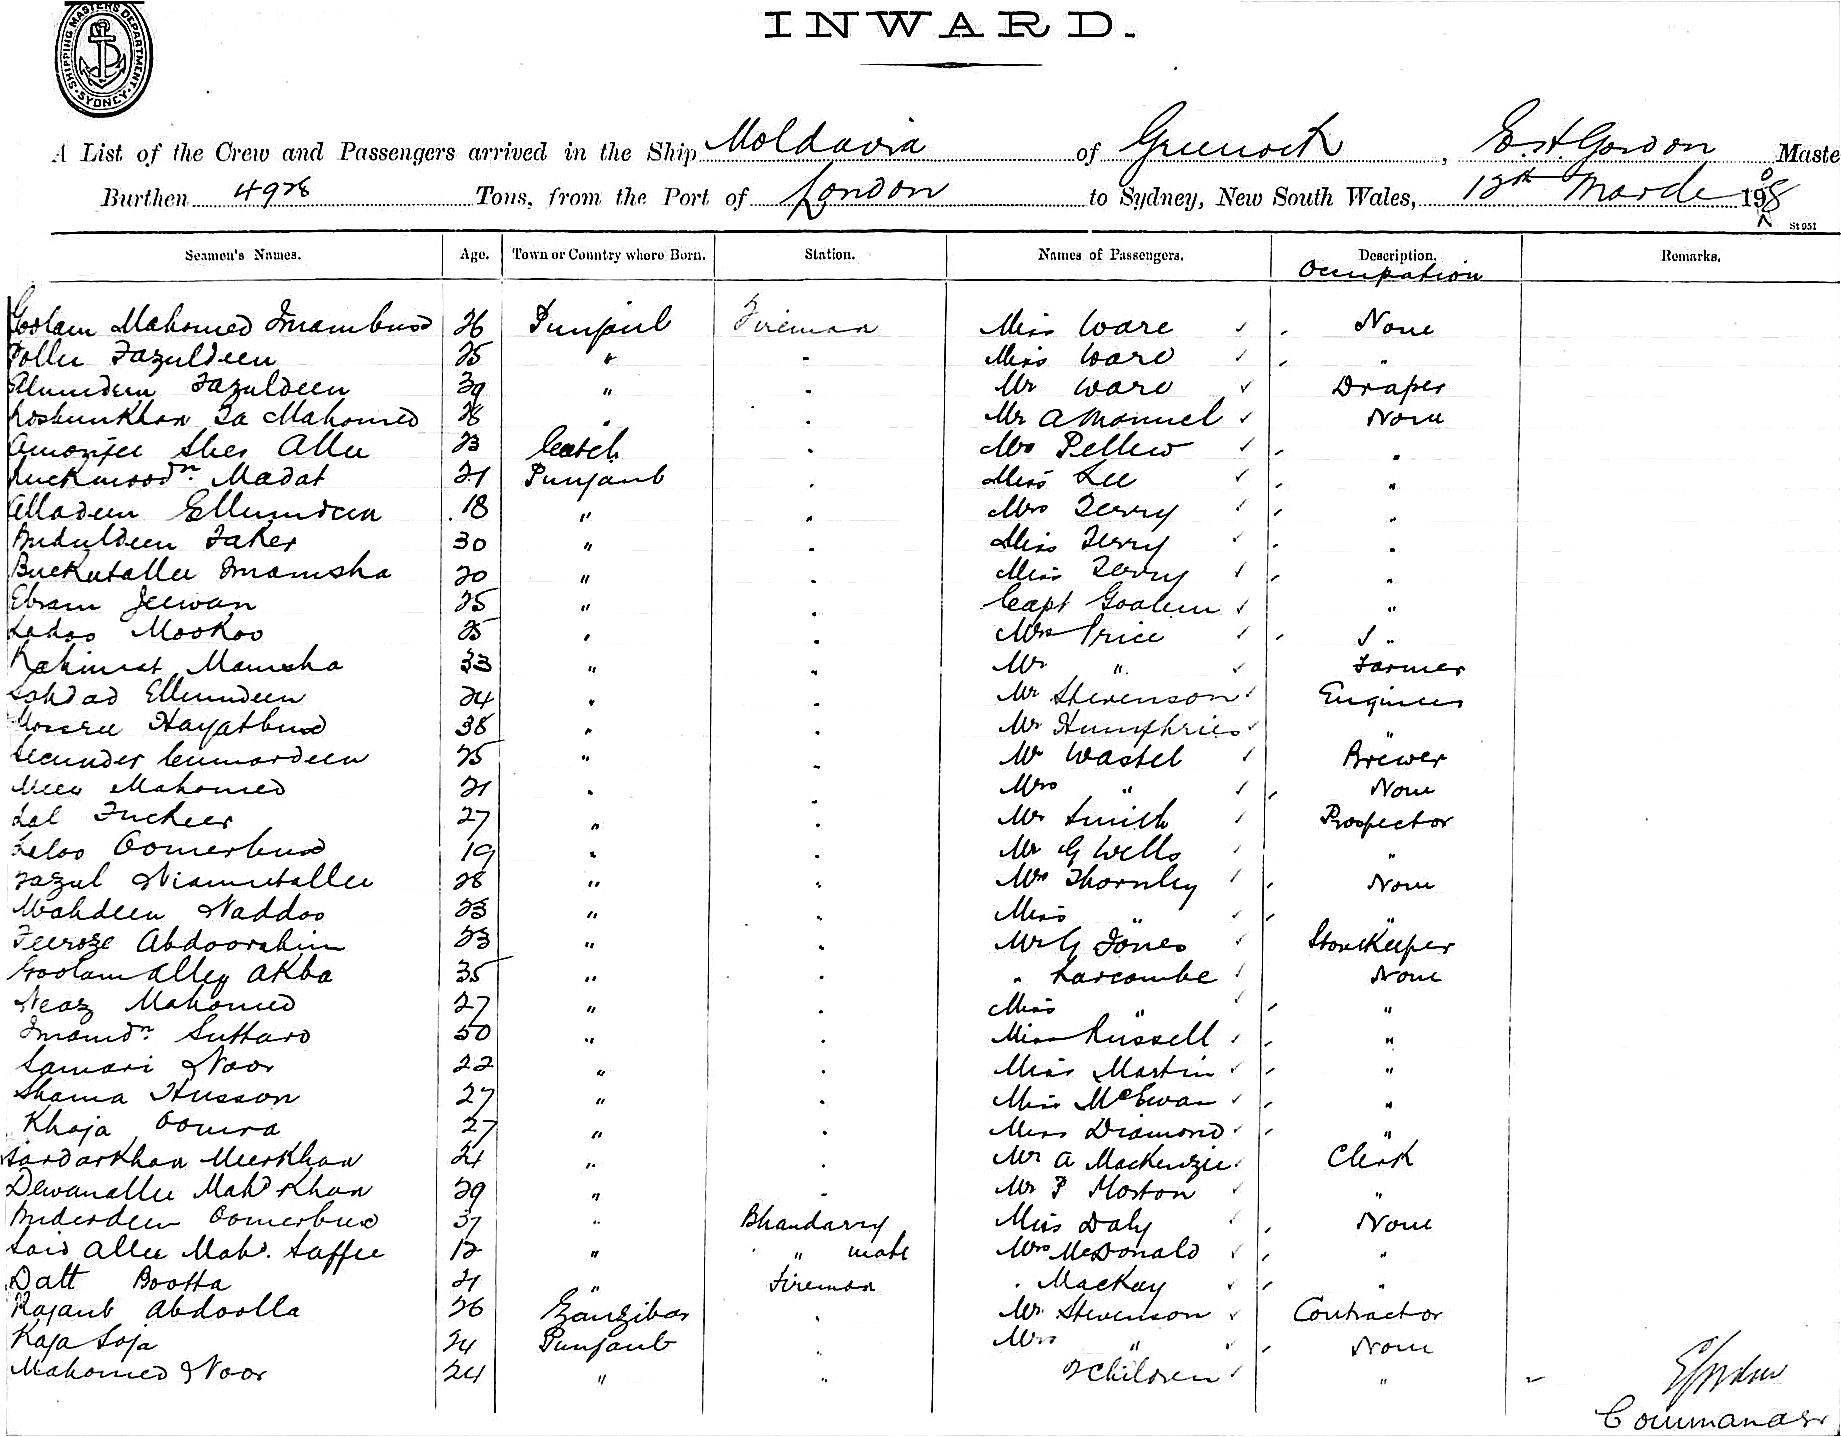 SHIPPING MASTERS DEPARTMENT. SYDNEY.
INWARD.
A List of the Crew and Passengers arrived in the Ship Moldavia of Greenock, Master
Burthen 4928 Tons, from the Port of London to Sydney, New South Wales, 12th March 1908
St 951
Seamen's Names. Age. Town or Country where Born. Station. Names of Passengers. Description. Remarks.
Occupation
Goolam Mahomed Imambux 26 Punjaub Fireman Miss Ware None
Fazuldeen 25 " " Miss Ware "
Fazuldeen 39 " " Mr Ware Draper
Mahomed 28 " " Mr A Manuel None
Sher Allee 23 Cutch " Mrs Pellew "
Madat 21 Punjaub " Miss Lee "
Alladeen Ellumdeen 18 " " Mrs Terry "
Faker 30 " " Miss Terry "
Buckutallee Imamsha 20 " " Miss Terry "
Ebram Jeewan 25 " " Capt "
Ladoo Mookoo 25 " " Mrs Price "
Rahimat Mamsha 33 " " Mr " Farmer
Ellumdeen 24 " " Mr Stevenson Engineer
Hayatbux 38 " " Mr Humphries "
Secunder 25 " " Mr Wastel Brewer
Meer Mahomed 21 " " Mrs " None
Lal Fuckeer 27 " " Mr Smith Prospector
Laloo Oomerbux 19 " " Mr G Wells "
Fazul Niamutallee 28 " " Mrs Thornley None
Naddoo 23 " " Miss " "
Feeroze Abdoorahim 23 " " Mr G Jones Storekeeper
Goolam Alley Akba 35 " " " Larcombe None
Neaz Mahomed 27 " " Miss " "
Imamdn Suttaro 50 " " Miss Russell "
Samari Noor 22 " " Miss Martin "
Shama Husson 27 " " Miss McEwan "
Khoja Oomra 27 " " Miss Diamond "
Sardarkhan Meerkhan 21 " " Mr A Mackenzie Clerk
Dewanallee Mahd Khan 29 " " Mr P Morton "
Oomerbux 37 " Bhandarry Miss Daly None
Said Allee Mahd. Saffee 12 " " mate Mrs McDonald "
Datt Bootta 21 " Fireman " Mackay "
Rajaub Abdoolla 26 Zanzibar " Mr Stevenson Contractor
Kaja Soja 24 Punjaub " Mrs " None
Mahomed Noor 24 " " 2 children "
Commander